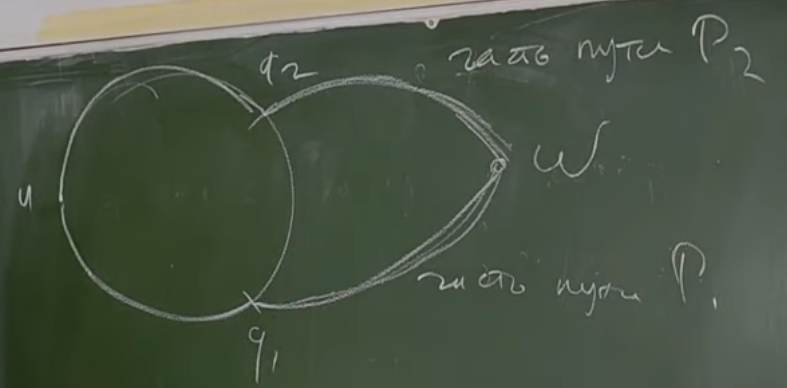 q₂
часть пути P₂
u
W
часть пути P₁
q₁